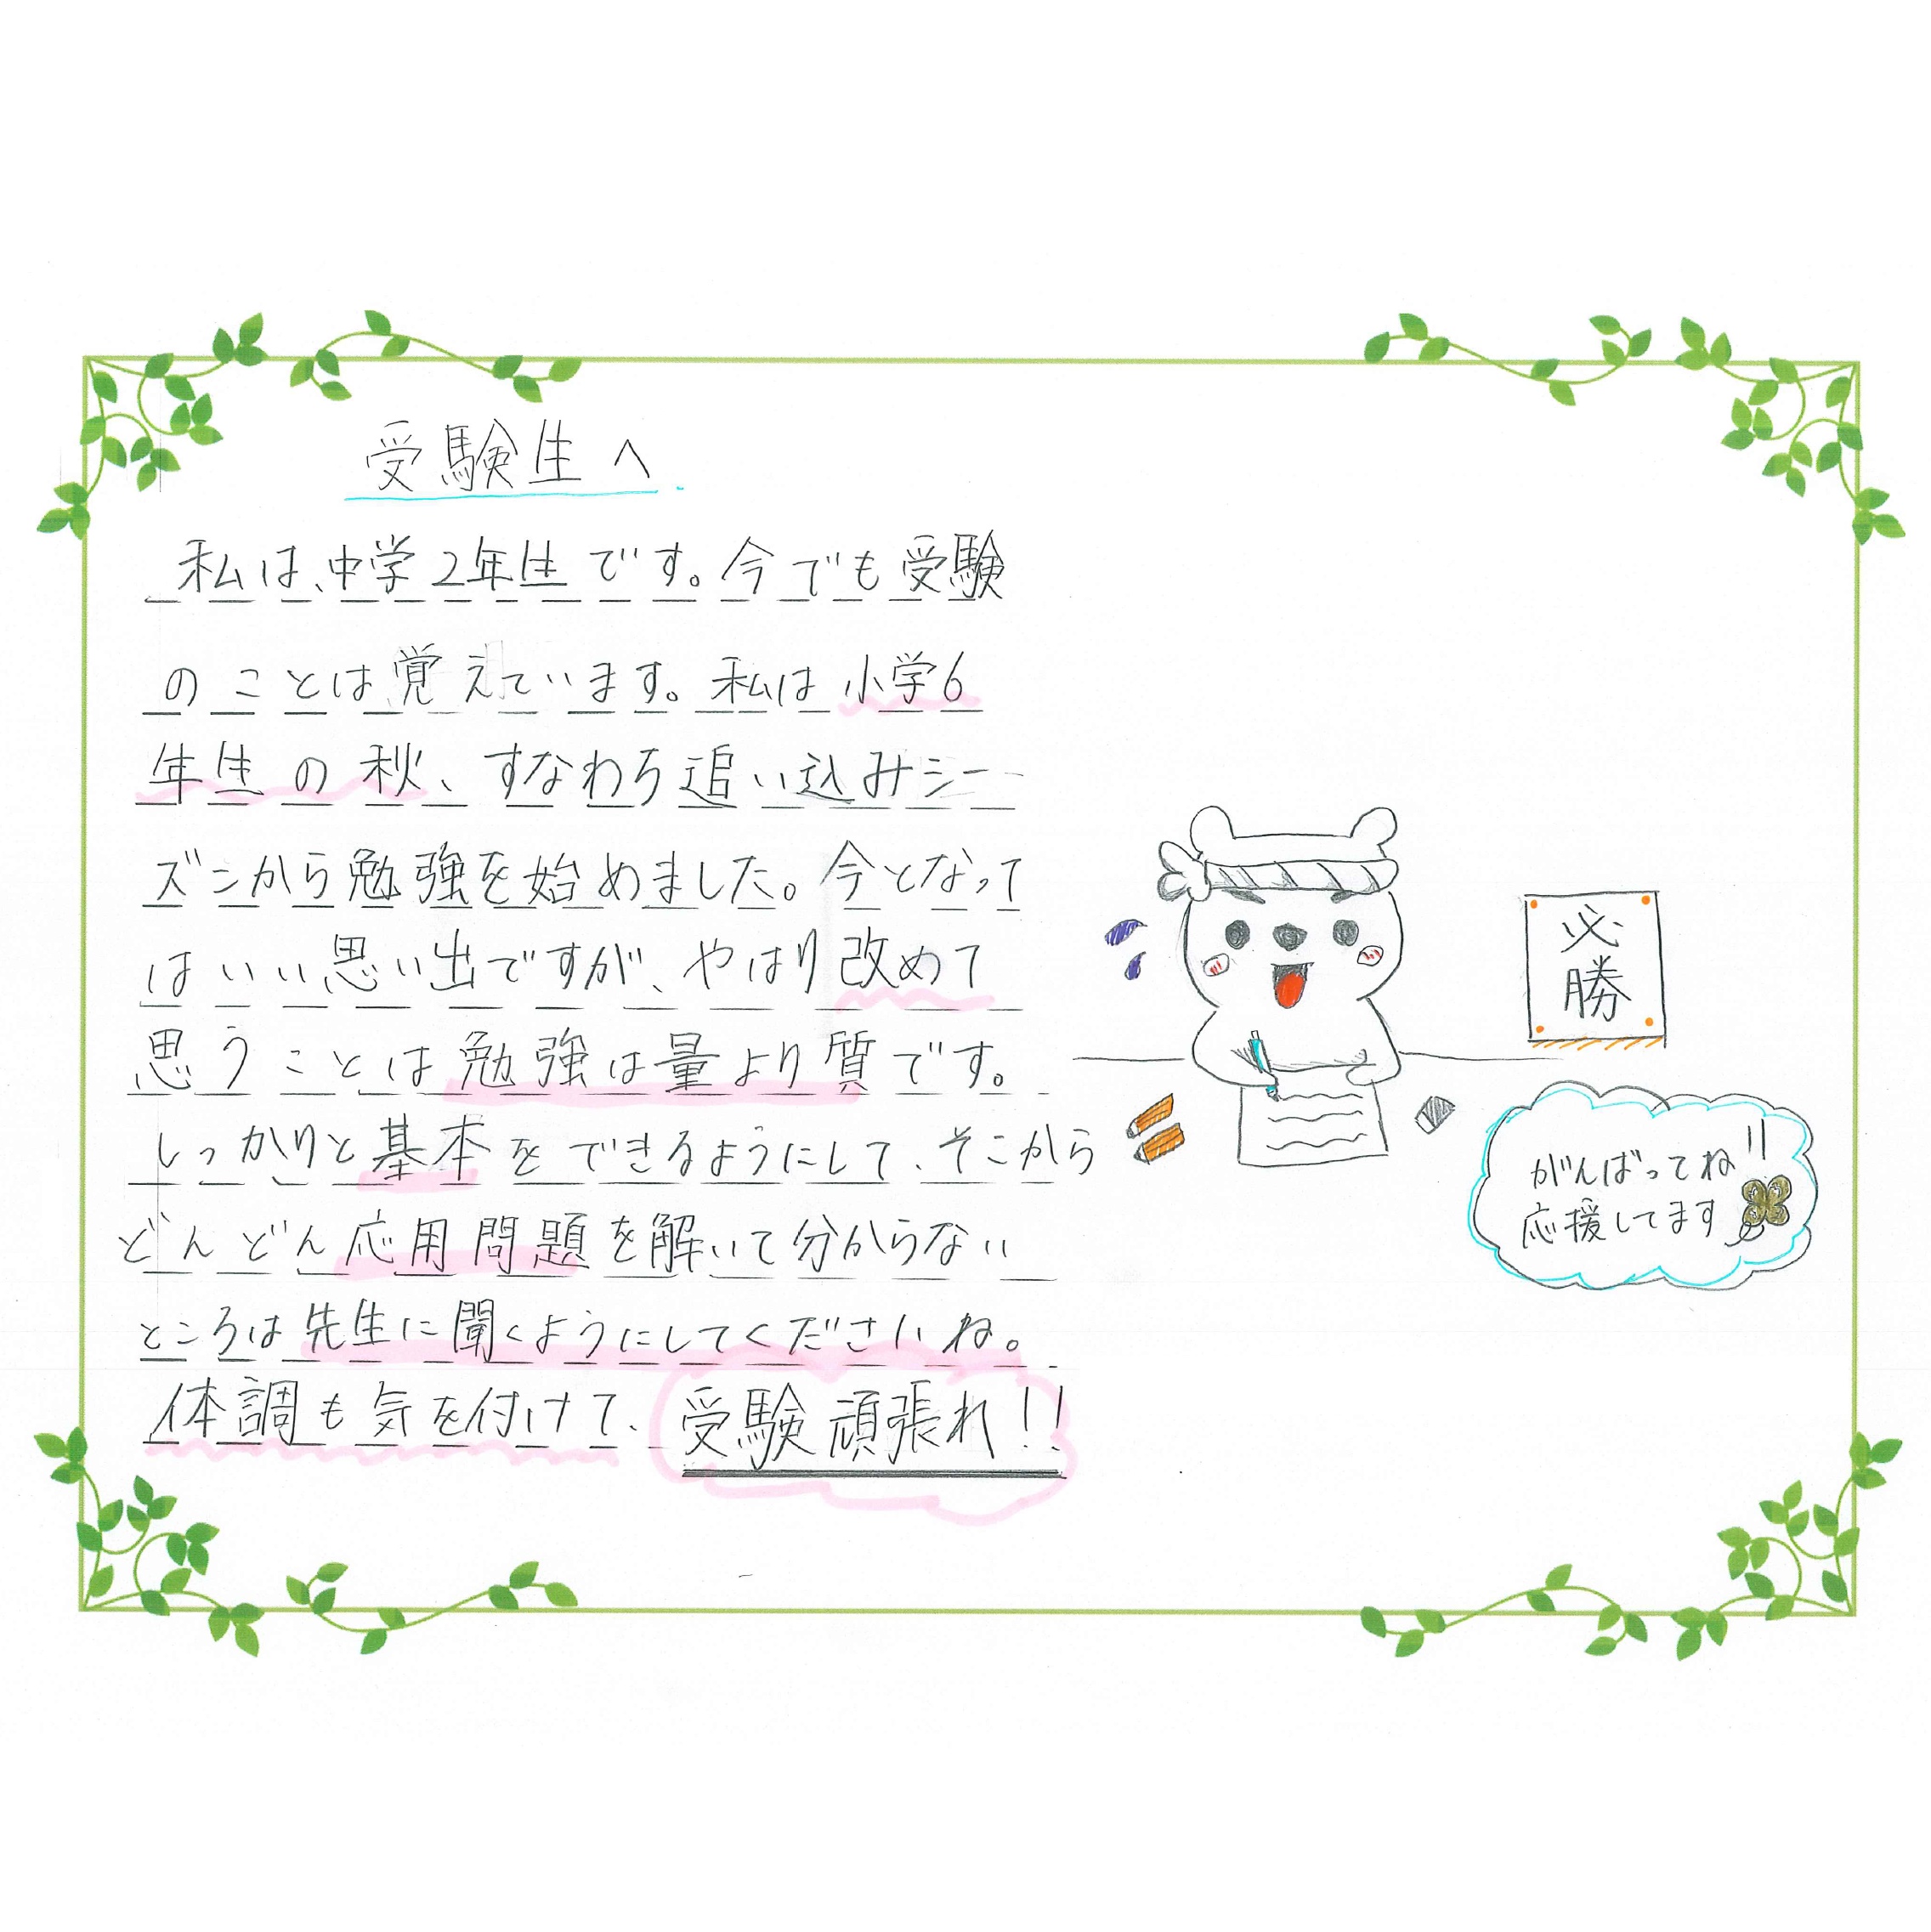 受験生へ
私は、中学2年生です。今でも受験
のことは覚えています。私は小学6
年生の秋、すなわち追い込みシー
ズンから勉強を始めました。今となって
はいい思い出ですが、やはり改めて
思うことは勉強は量より質です。
しっかりと基本をできるようにして、そこから
どんどん応用問題を解いて分からない
ところは先生に聞くようにしてくださいね。
体調も気を付けて、受験頑張れ!!
必勝
がんばってね!!
応援してます